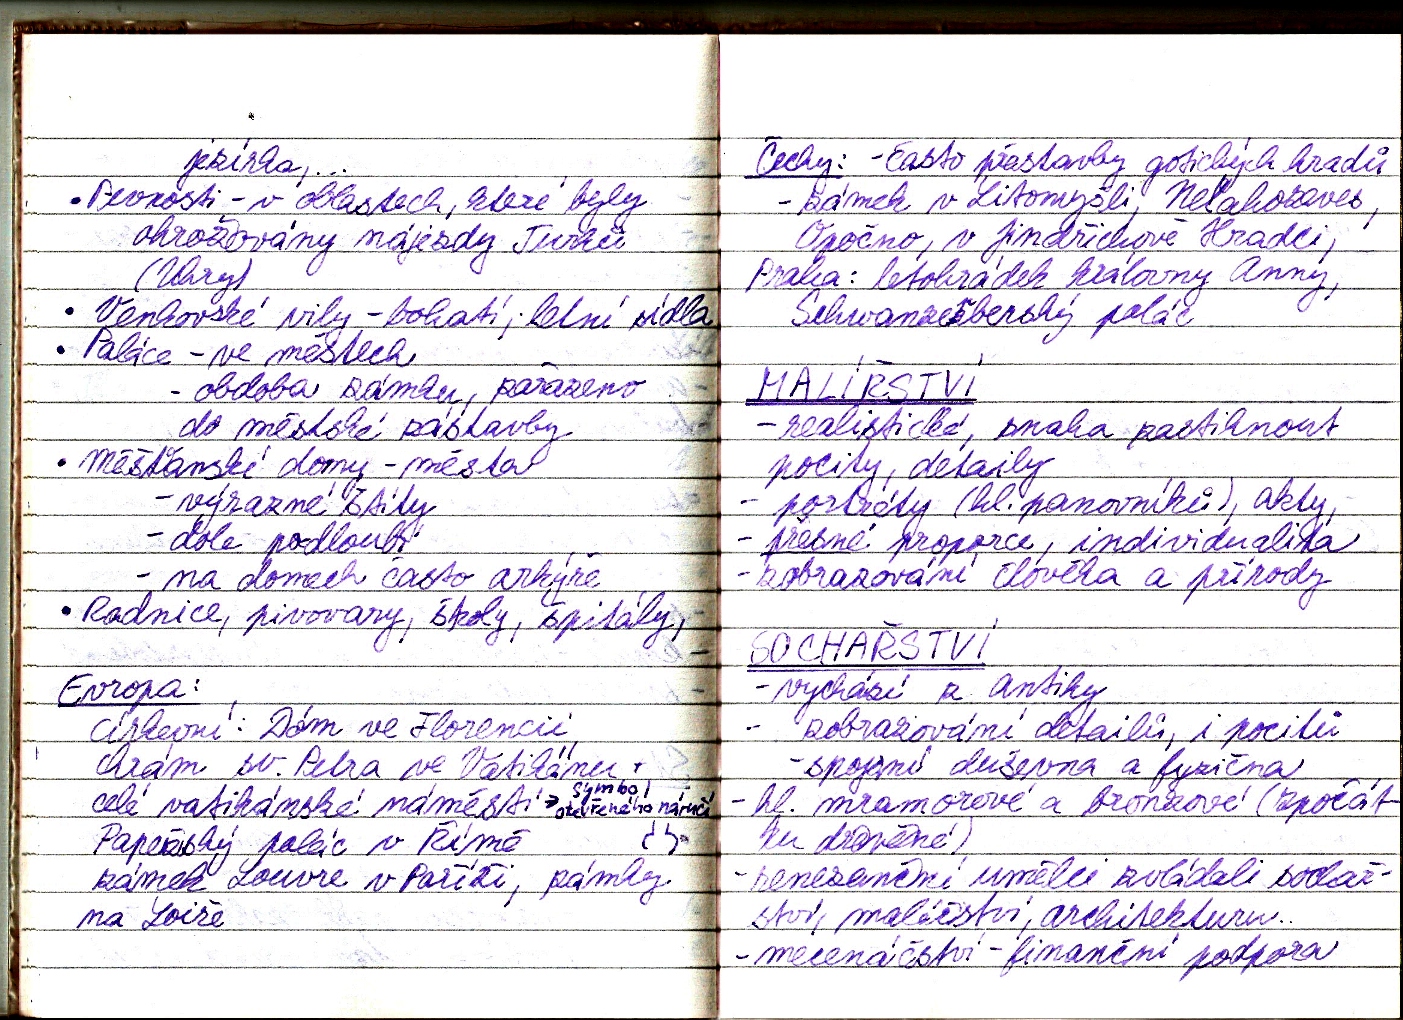 jezírka,...
• Pevnosti - v oblastech, které byly
ohrožovány nájezdy Turků
(Uhry)
• Venkovské vily - bohatí, letní sídla
• Paláce - ve městech
- obdoba zámku, zařazeno
do městské zástavby
• Měšťanské domy - města
- výrazné štíty
- dole podloubí
- na domech často arkýře
• Radnice, pivovary, školy, špitály,
Evropa:
církevní: Dóm ve Florencii
chrám sv. Petra ve Vatikánu +
celé vatikánské náměstí → symbol
otevřeného náručí
Papežský palác v Římě
zámek Louvre v Paříži, zámky
na Loiře
Čechy: - často přestavby gotických hradů
- zámek v Litomyšli, Nelahozeves,
Opočno, v Jindřichově Hradci,
Praha: letohrádek královny Anny,
Schwanzenberský palác
MALÍŘSTVÍ
- realistické, snaha zastihnout
pocity, detaily
- portréty (hl. panovníků), akty,
- přesné proporce, individualita
- zobrazování člověka a přírody
SOCHAŘSTVÍ
- vychází z antiky
- zobrazování detailů, i pocitů
- spojení duševna a fyzična
- hl. mramorové a bronzové (zpočát-
ku dřevěné)
- renezanční umělci zvládali sochař-
ství, malířství, architekturu..
- mecenáčství - finanční podpora